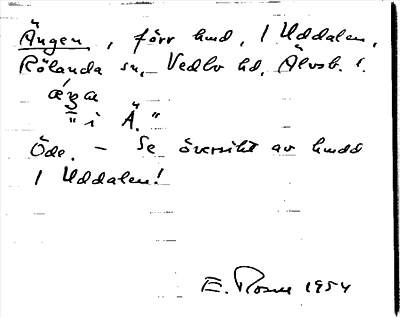 Ängen, förr hmd, 1 Uddalen,
Rölanda sn, Vedbo hd, Älvsb. l.
æŋa
" i Ä."
Öde. – Se översikt av hmdd
1 Uddalen!
E. Rosén 1954